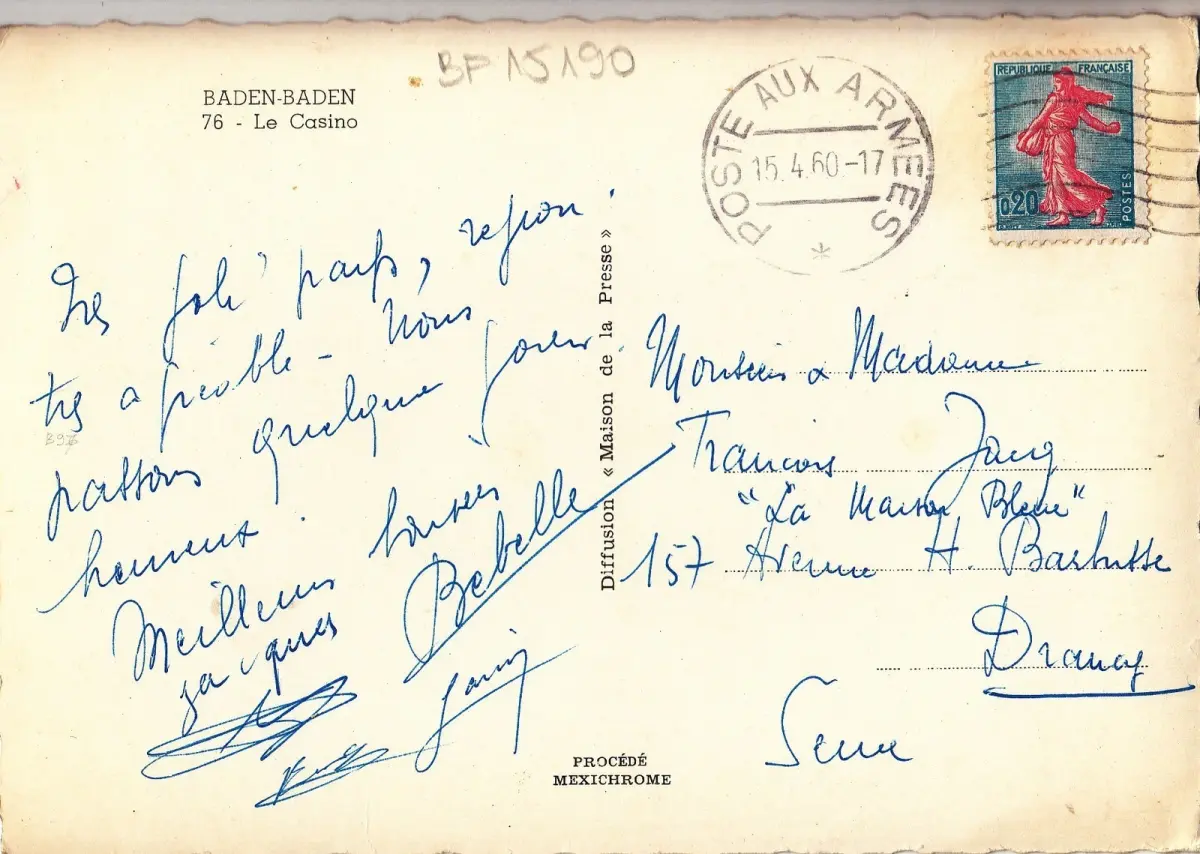 BP 15190
BADEN-BADEN
76 - Le Casino
POSTE AUX ARMEES
15.4.60.-17
*
REPUBLIQUE FRANÇAISE
0,20
POSTES
Très joli pays, région
très agréable - Nous
passons quelques jours
heureux.
Meilleurs baisers
Jacques Bebelle
897
Diffusion « Maison de la Presse »
Monsieur & Madame
François
"La Maison Bleue"
157 Avenue H. Barbusse
Drancy
Seine
PROCÉDÉ
MEXICHROME